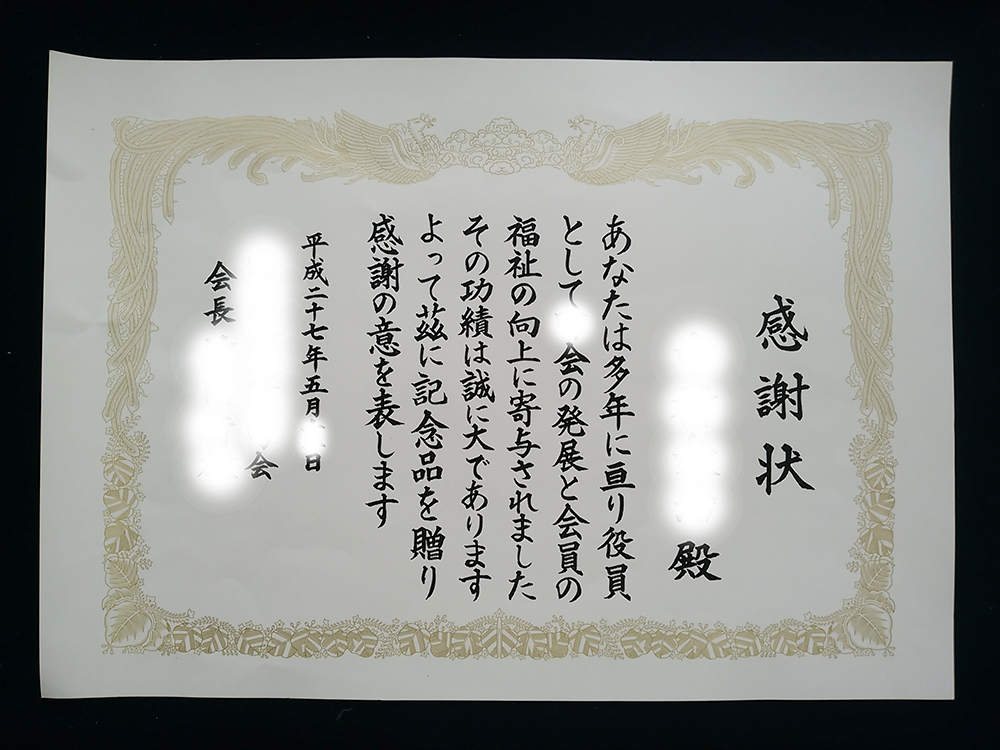 感謝状
殿
あなたは多年に亘り役員
として
会の発展と会員の
福祉の向上に寄与されました
その功績は誠に大であります
よって茲に記念品を贈り
感謝の意を表します
平成二十七年五月
日
会
会長